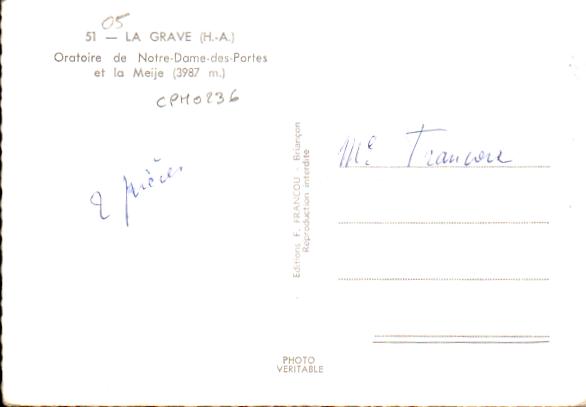 05
51 — LA GRAVE (H.-A.)
Oratoire de Notre-Dame-des-Portes
et la Meije (3987 m.)
CPM0236
Editions F. FRANCOU - Briançon
Reproduction interdite
Francou
2
PHOTO
VERITABLE